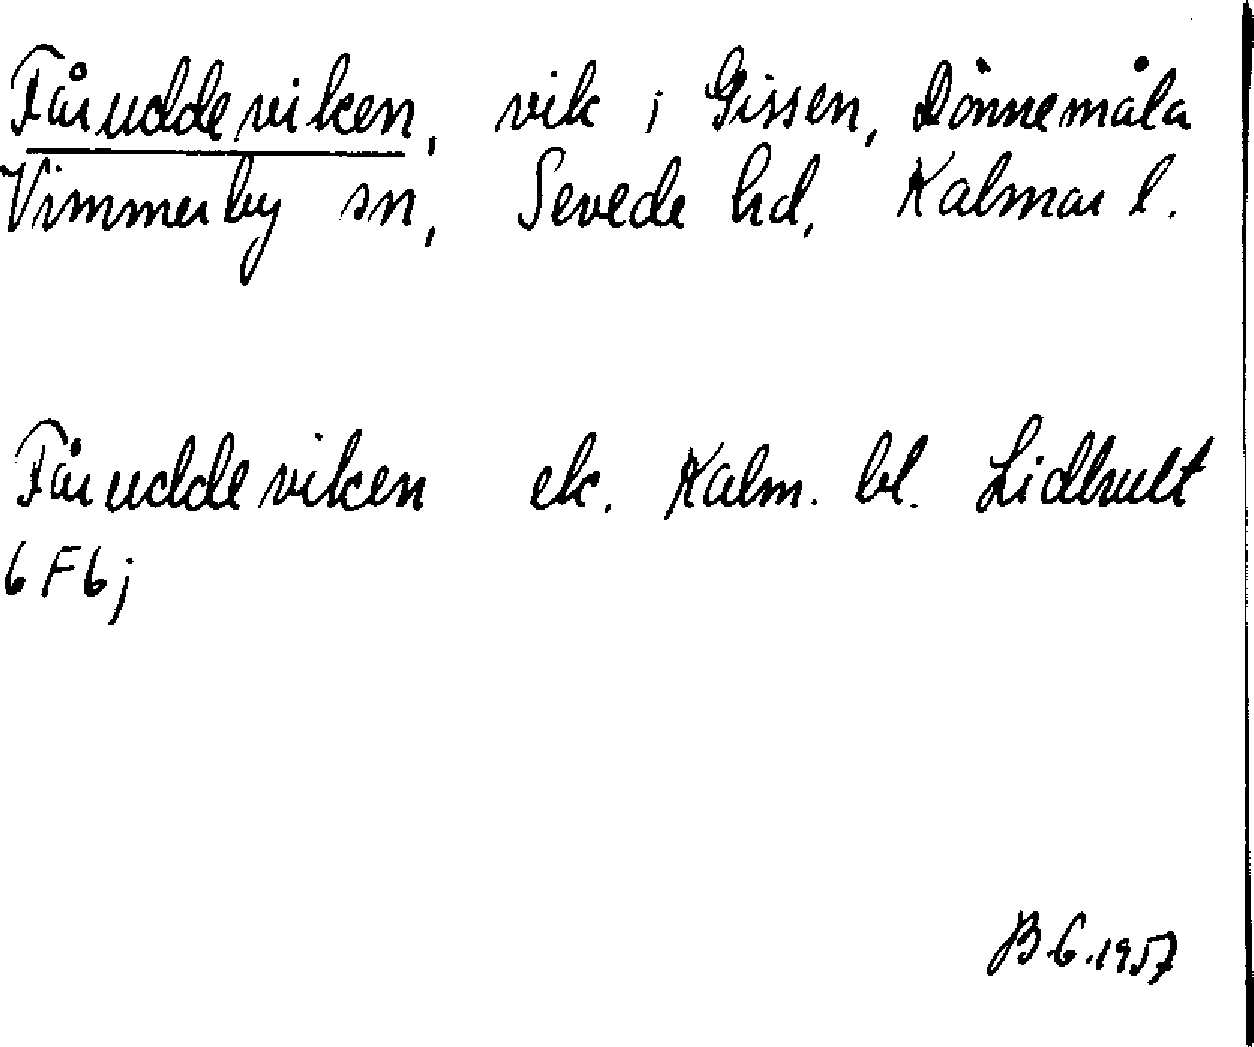 Fåruddeviken, vik i Gissen, Dönnemåla
Vimmerby sn, Sevede hd, Kalmar l.
Fåruddeviken ek. Kalm. bl. Lidhult
6 F 6 j
BG. 1957